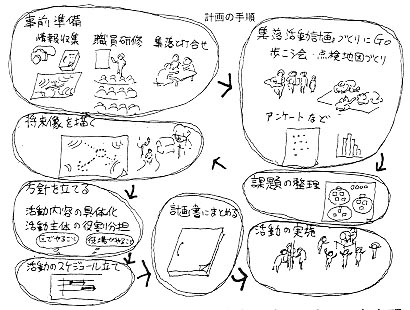 計画の手順
事前準備
情報収集
職員研修
集落打合せ
集落活動計画づくりにGO
歩こう会・点検地図づくり
アンケートなど
課題の整理
将来像を描く
方針を立てる
活動内容の具体化
活動主体の役割分担
区でやること
役場がやること
活動のスケジュール立て
計画書にまとめる
活動の実施